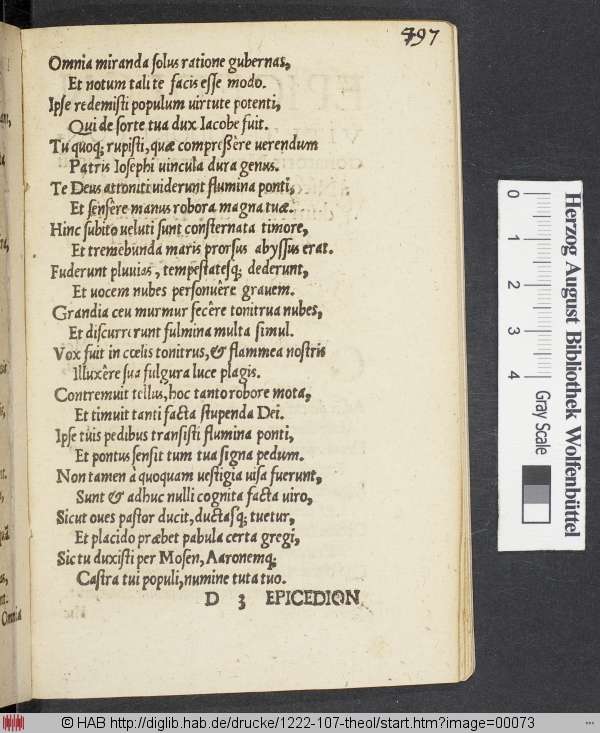 497
Omnia miranda solus ratione gubernas,
Et notum tali te facis esse modo.
Ipse redemisti populum virtute potenti,
Qui de sorte tua dux Iacobe fuit.
Tu quoq; rupisti, quæ compreßêre uerendum
Patris Iosephi vincula dura genus.
Te Deus attoniti uiderunt flumina ponti,
Et sensêre manus robora magna tuæ.
Hinc subito ueluti sunt consternata timore,
Et tremebunda maris prorsus abyssus erat.
Fuderunt pluuias, tempestatesq; dederunt,
Et uocem nubes personuêre grauem.
Grandia ceu murmur fecêre tonitrua nubes,
Et discurrerunt fulmina multa simul.
Vox fuit in cœlis tonitrus, & flammea nostris
Illuxêre sua fulgura luce plagis.
Contremuit tellus, hoc tanto robore mota,
Et timuit tanti facta stupenda Dei.
Ipse tuis pedibus transisti flumina ponti,
Et pontus sensit tum tua signa pedum.
Non tamen à quoquam uestigia uisa fuerunt,
Sunt & adhuc nulli cognita facta uiro,
Sicut oues pastor ducit, ductasq; tuetur,
Et placido præbet pabula certa gregi,
Sic tu duxisti per Mosen, Aaronemq;
Castra tui populi, numine tuta tuo.
D 3 EPICEDION
Omnia
0
1
2
3
4
Gray Scale
Herzog August Bibliothek Wolfenbüttel
© HAB http://diglib.hab.de/drucke/1222-107-theol/start.htm?image=00073